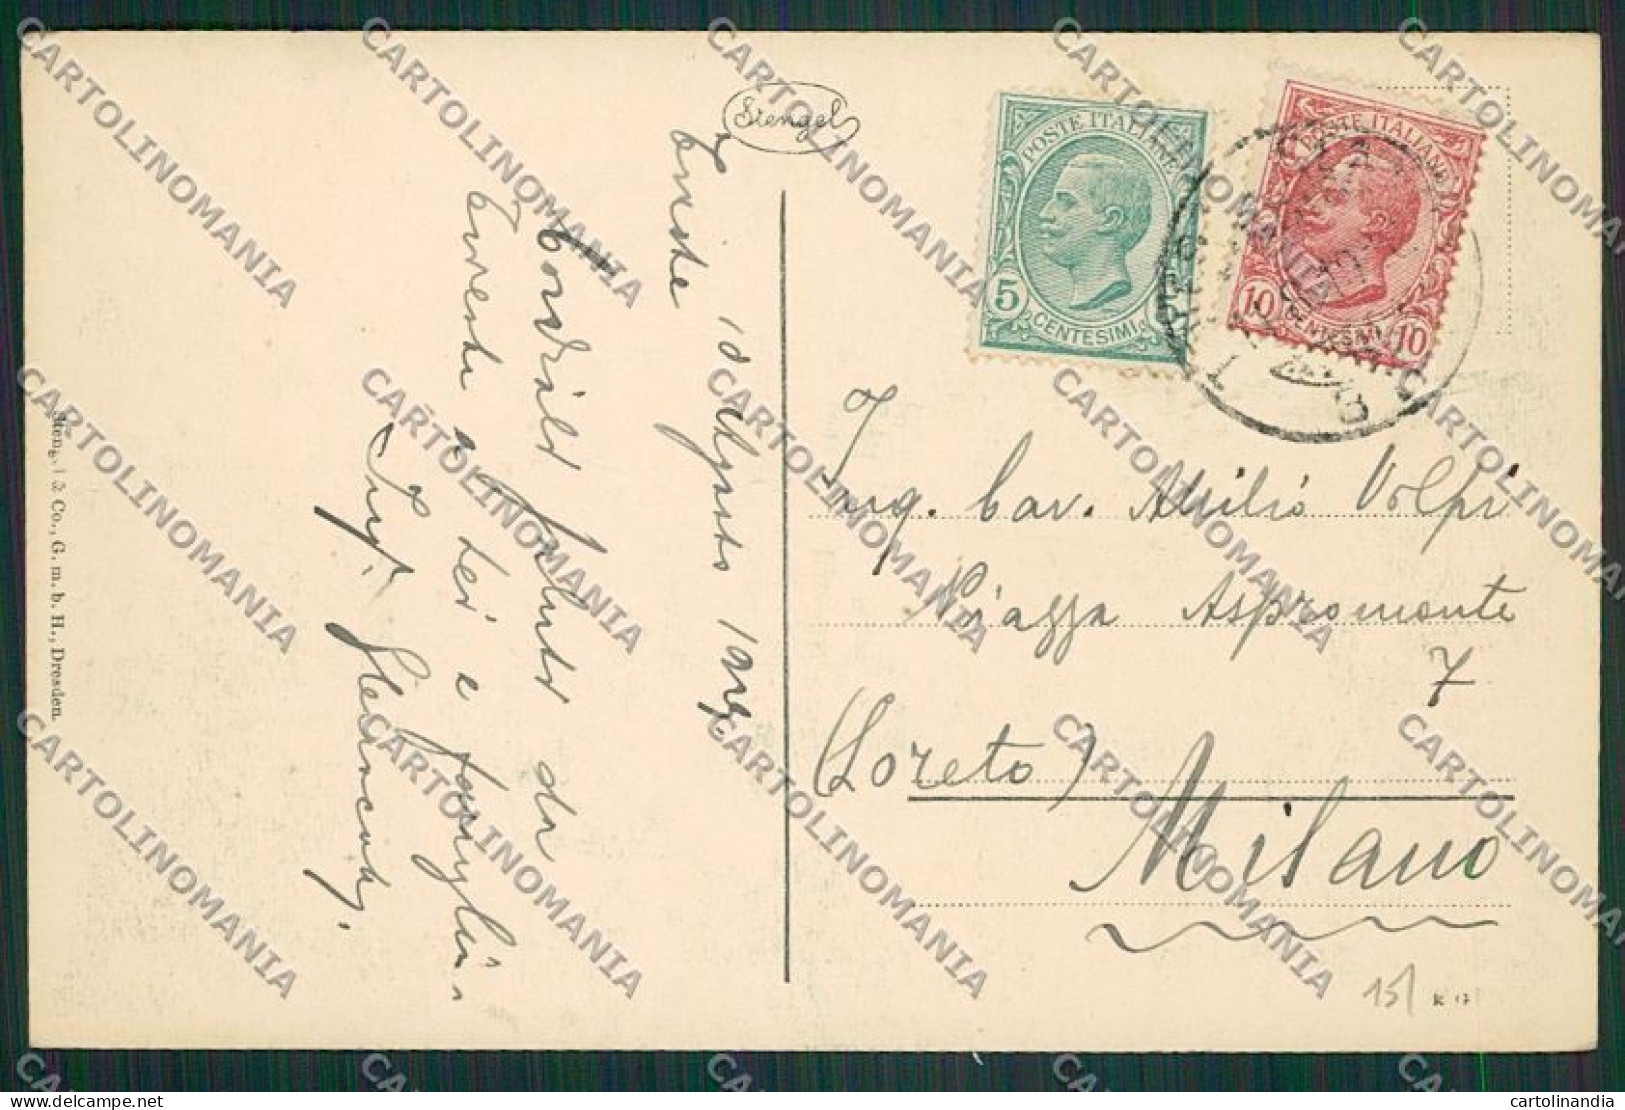 Stengel
Trieste 10 Agosto 1924
Cordiali saluti da
Trieste a Lei e famiglia
Stengel & Co., G. m. b. H., Dresden.
POSTE ITALIANE
5 CENTESIMI
POSTE ITALIANE
10 CENTESIMI 10
Ing. Cav. Attilio Volpi
Piazza Aspromonte
7
(Loreto)
Milano
15
CARTOLINOMANIA
cartolinandia